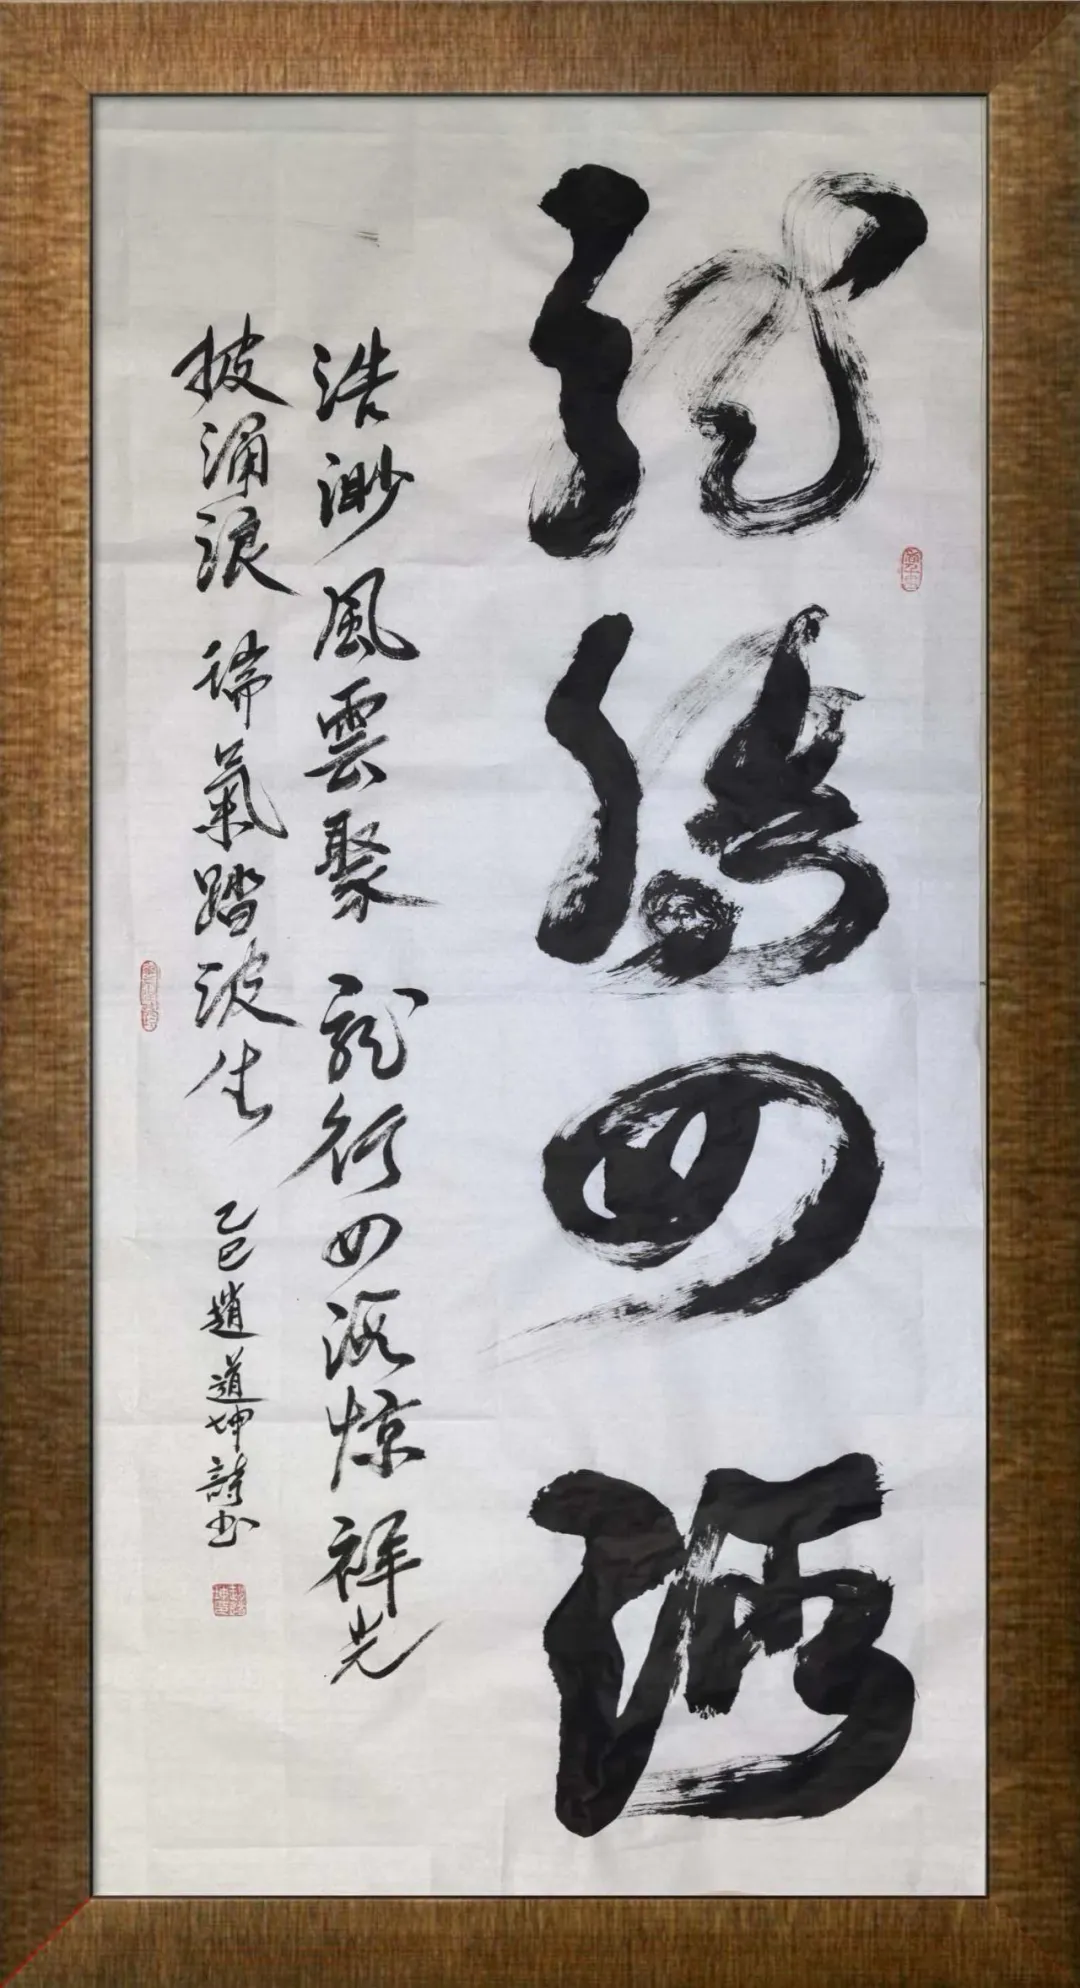 龍騰四海
浩渺風雲聚 龍行四海惊 祥光
披涌浪 瑞氣踏波生 乙巳趙道坤詩书